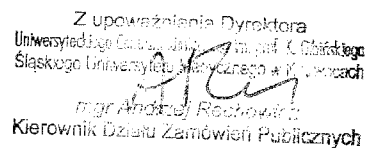 Z upoważnienia Dyrektora
Uniwersyteckiego im. prof. K. Gibińskiego
Śląskiego Uniwersytetu Medycznego w Katowicach
mgr Andrzej
Kierownik Działu Zamówień Publicznych